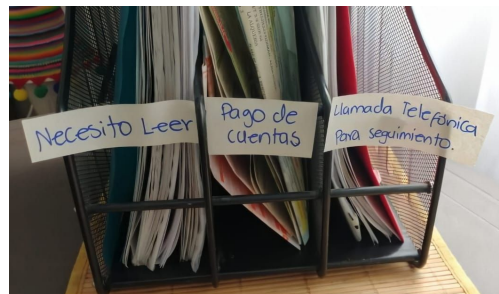 Necesito Leer
Pago de
cuentas
Llamada Telefónica
Para seguimiento.